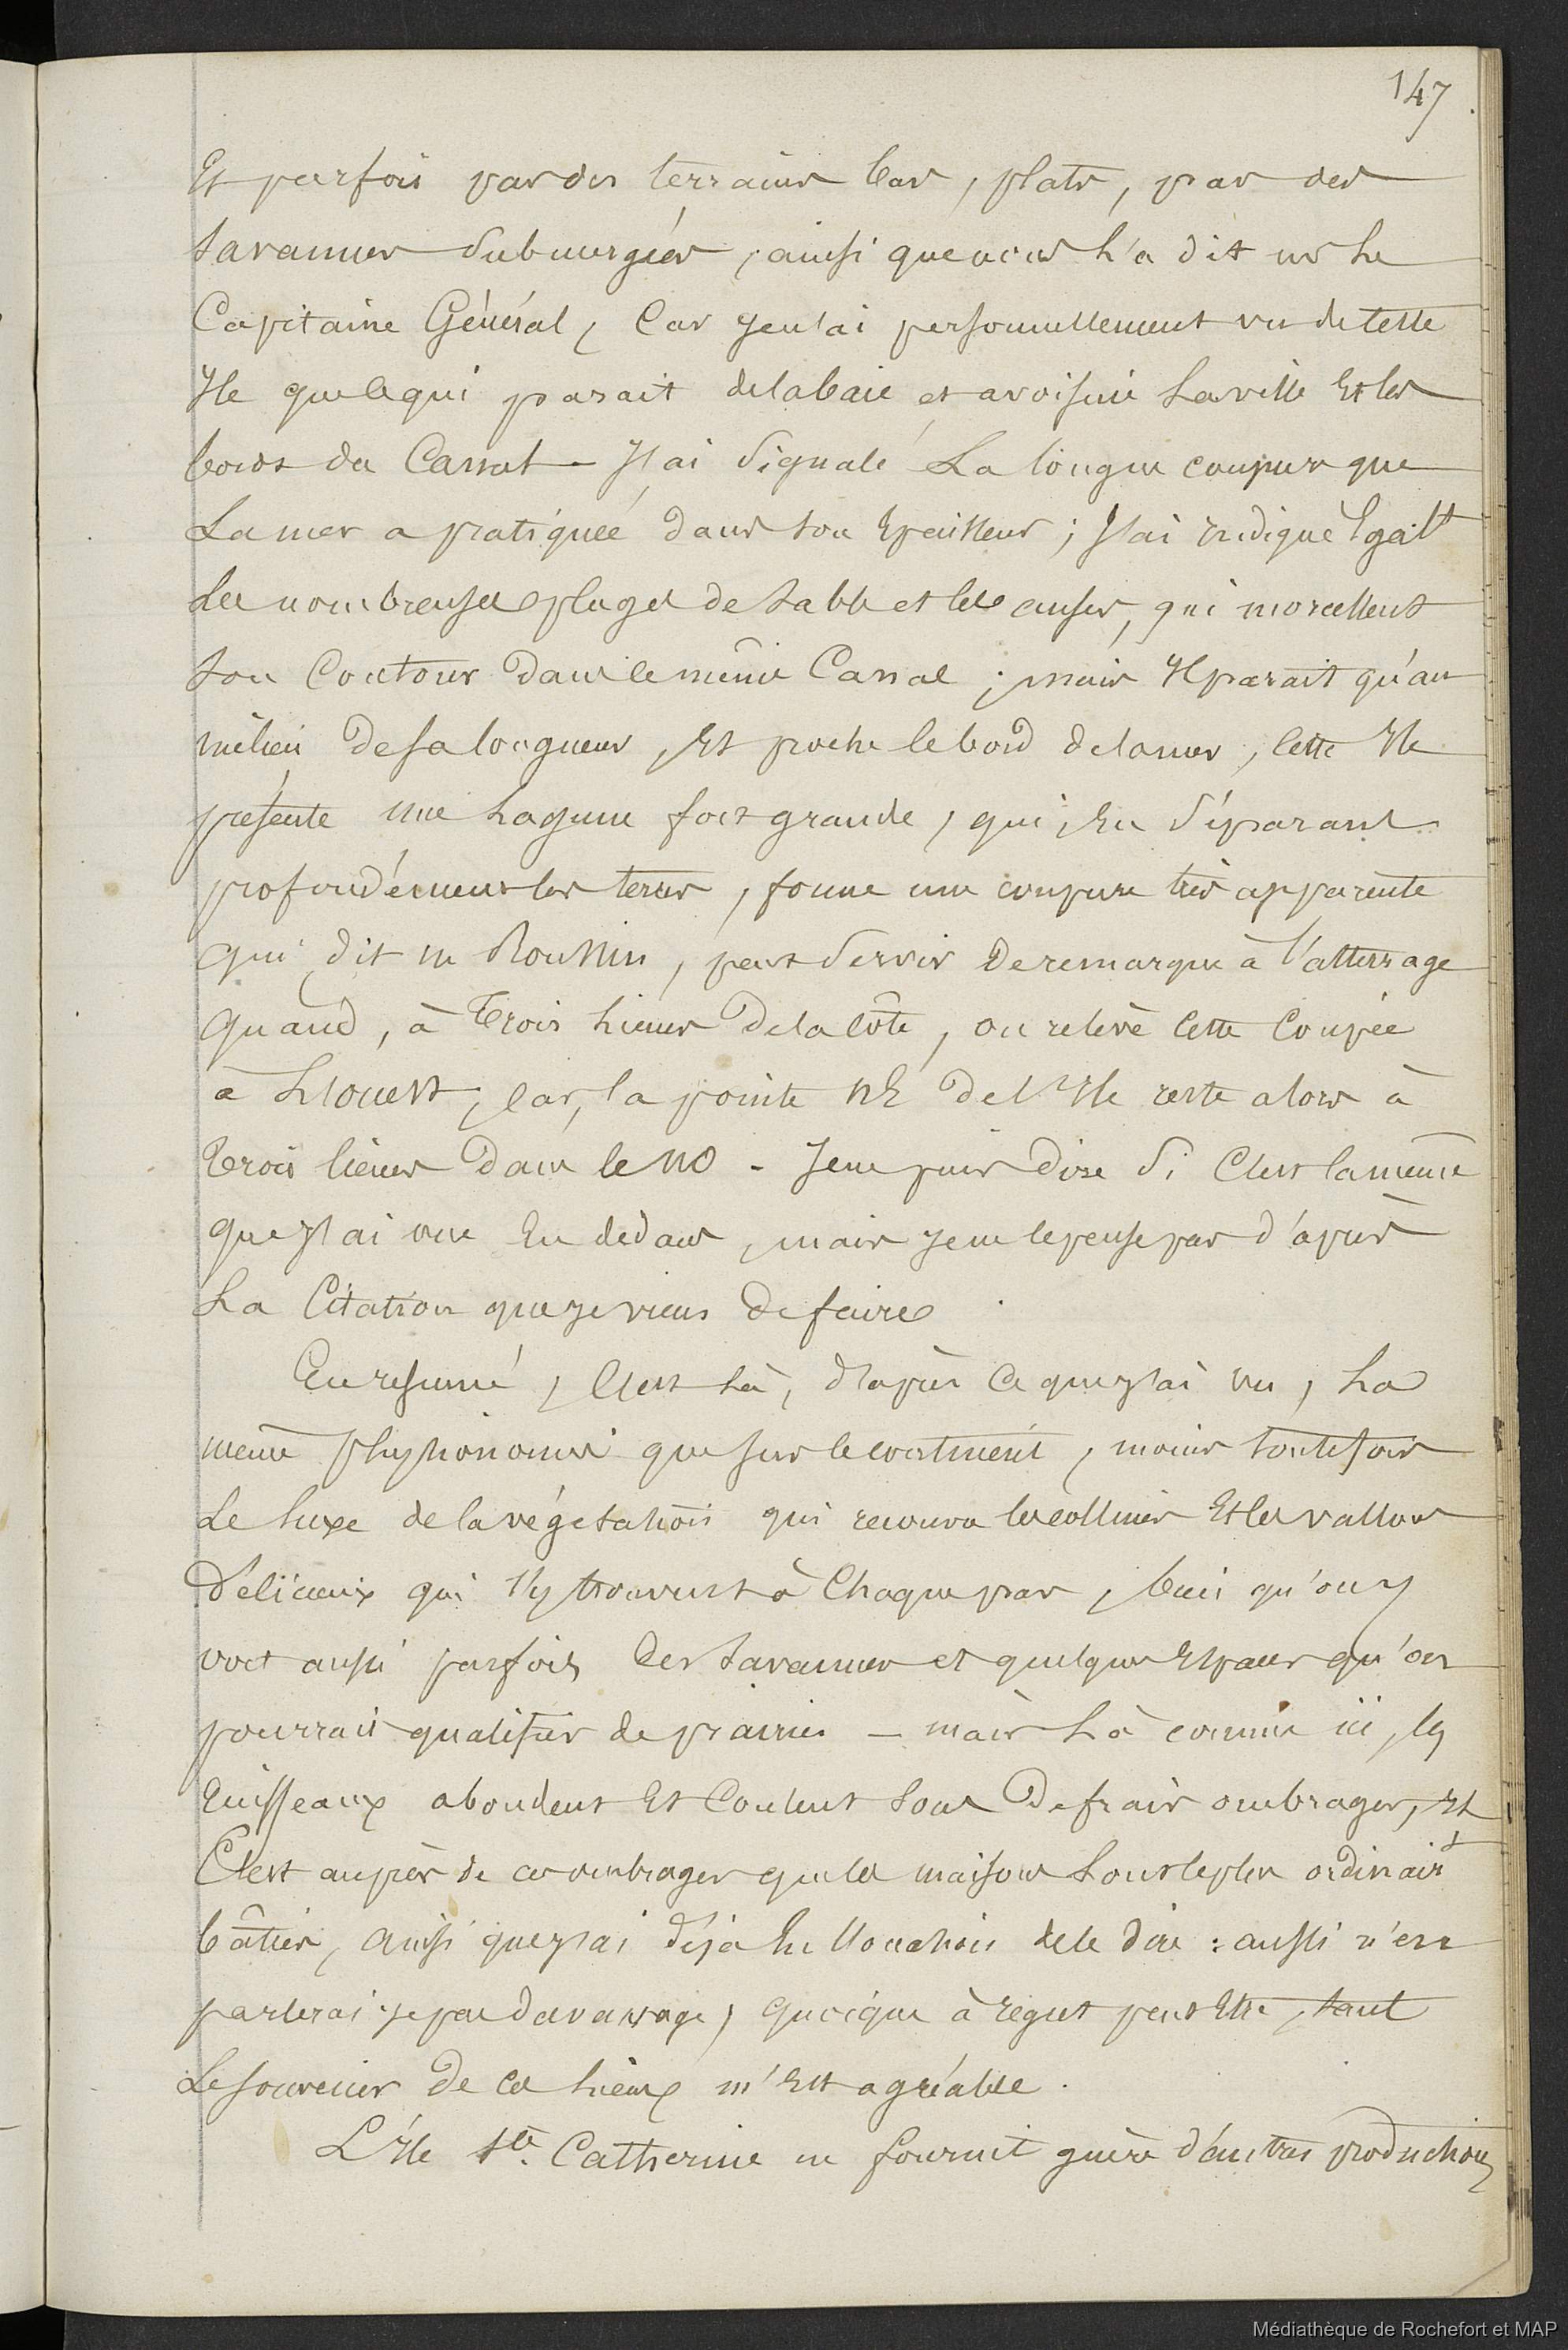 147
Et parfois par des terrains bas, plats, par des
savannes submergées, ainsi que nous l'a dit mr le
Capitaine Général, Car je n'ai personnellement vu de cette
Ile que ce qui parait de la baie et avoisine la ville Et les
bords du Canal - J'ai signalé La longue coupure que
La mer a pratiquée dans son Epaisseur ; J'ai indiqué Egalt
Les nombreuses plages de sable et les anses, qui morcellent
son Contour dans le même Canal ; mais Il parait qu'au
milieu de sa longueur, Et proche le bord de la mer, cette Ile
présente une Lagune fort grande, qui, En séparant
profondément les terres, forme une coupure très apparente
qui, dit m Roussin, peut servir de remarque à l'atterrage
quand, à trois lieues de la côte, on relève cette Coupée
à L'Ouest, Car, la pointe NE de l'Ile reste alors à
trois lieues dans le NO - Je ne puis dire si C'est la même
que J'ai vue En dedans, mais je ne le pense pas d'après
La Citation que je viens de faire.
En resumé, C'est là, d'après Ce que j'ai vu, La
même physionomie que sur le continent, moins toutefois
Le luxe de la végétation qui recouvre les collines Et les vallons
délicieux qui s'y trouvent à Chaque pas, bien qu'on y
voit aussi parfois des savannes et quelques Espaces qu'on
pourrait qualifier de prairies - mais Là comme ici, les
ruisseaux abondent Et Coulent sous de frais ombrages, Et
C'est auprès de ces ombrages que les maisons sont le plus ordinairt
bâties, ainsi que j'ai déja Eu l'occasion de le dire : aussi n'en
parlerai je pas davantage, quoique à regret peut Etre, tant
Le souvenir de Ces lieux m'Est agréable.
L'Ile Ste Catherine ne fournit guère d'autres productions
Médiathèque de Rochefort et MAP